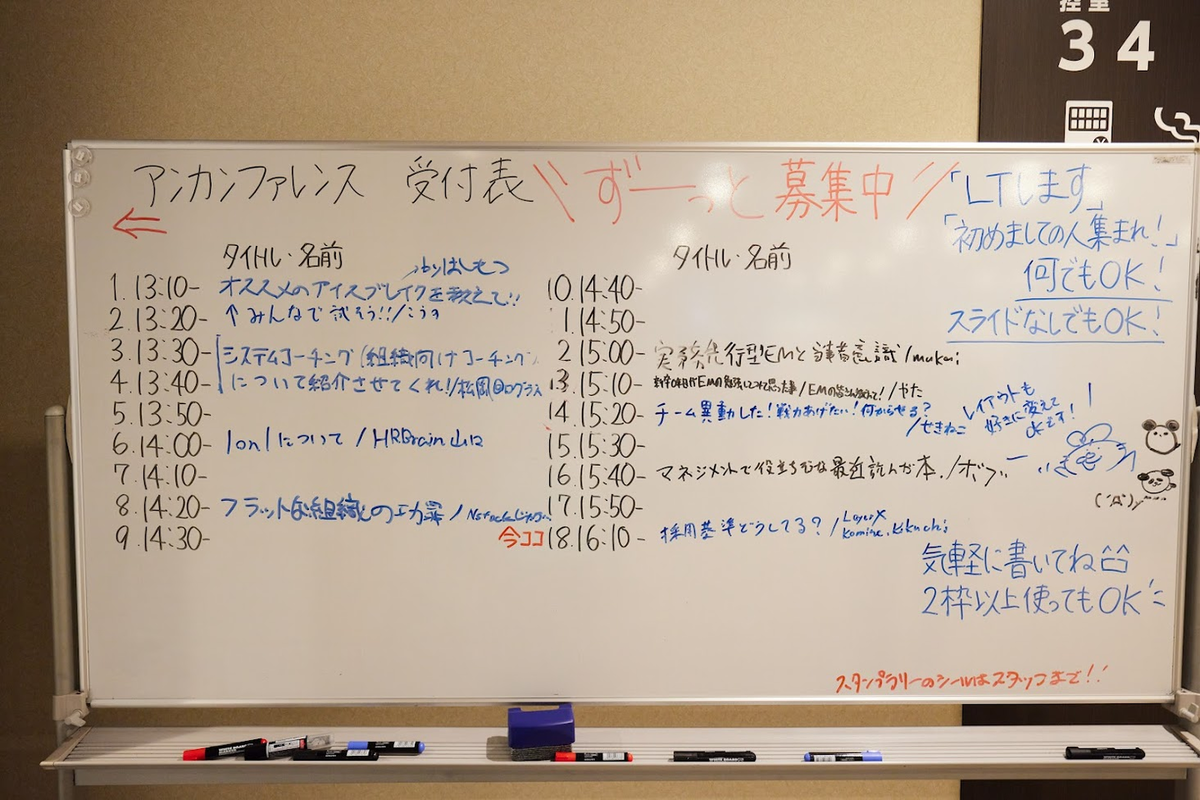 控室
34
アンカンファレンス 受付表
\\ずーっと募集中//
「LTします」
「初めましての人集まれ!」
何でもOK!
スライドなしでもOK!
←
タイトル・名前
1.13:10- オススメのアイスブレイクを教えて!!
2.13:20- ↑みんなで試そう!!/こうす
3.13:30- システムコーチング(組織向けコーチング)
4.13:40- について紹介させてくれ!/松岡@ログラス
5.13:50-
6.14:00- 1on1について/HRBrain 山口
7.14:10-
8.14:20- フラットな組織の功罪/
9.14:30-
タイトル・名前
10.14:40-
1.14:50-
2.15:00- 実務先行型EMと当事者意識/mukai
13.15:10- /やた
14.15:20- チーム異動した!戦力あげたい!何からせる?
/せきねこ
15.15:30-
16.15:40- マネジメントで役立ちそな最近読んだ本/ボブ
17.15:50-
今ココ 18.16:10- 採用基準どうしてる?/LayerX
komine, kikuchi
レイアウトも
好きに変えて
OKです!
気軽に書いてね
2枠以上使ってもOK
スタンプラリーのシールはスタッフまで!!